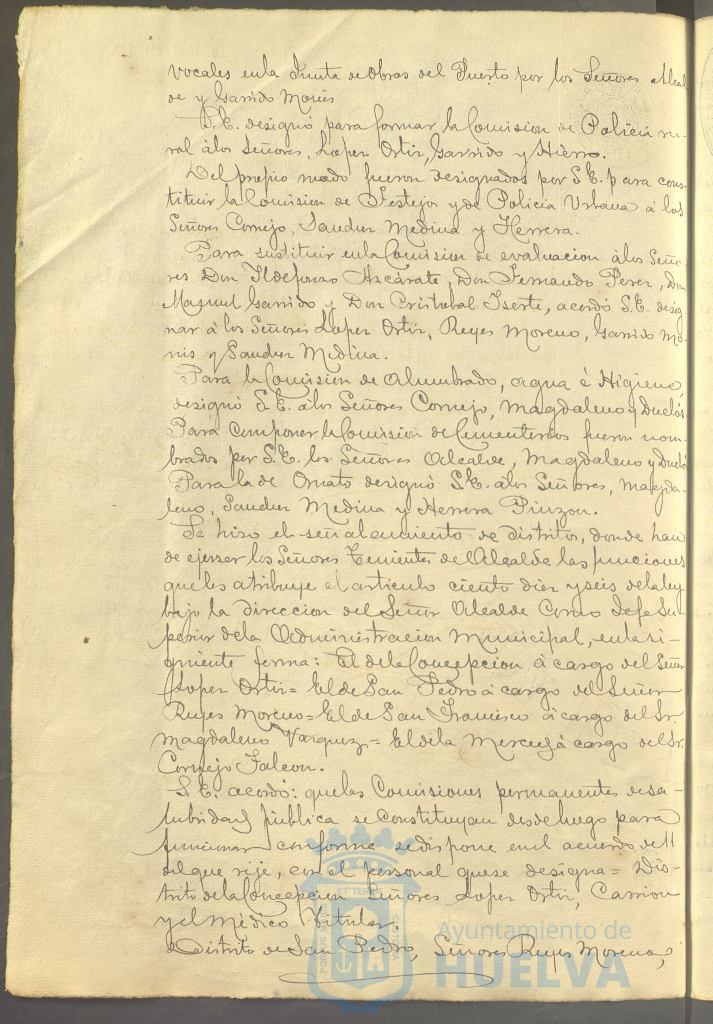 vocales en la Junta de Obras del Puerto por los Señores Alcal
de y Garrido Monis
S.E. designó para formar la Comision de Policía ru-
ral á los Señores, Lopez Ortiz, Garrido y Hierro.
Del propio modo fueron designados por S.E. para cons-
tituir la Comision de Festejos y de Policía Urbana á los
Señores Cornejo, Sanchez Medina y Herrera.
Para sustituir en la Comision de evaluacion á los Seño-
res Don Ildefonso Azcárate, Don Fernando Perez, Don
Manuel Garrido y Don Cristobal Iserte, acordó S.E. desig
nar á los Señores Lopez Ortiz, Reyes Moreno, Garrido Mo-
nis y Sanchez Medina.
Para la Comision de Alumbrado, agua é Higiene,
designó S.E. á los Señores Cornejo, Magdaleno y Duclós.
Para componer la Comision de Cementerios fueron nom-
brados por S.E. los Señores Alcalde, Magdaleno y Duclós
Para la de Ornato designó S.E. á los Señores, Magda-
leno, Sanchez Medina y Herrera Pinzon.
Se hizo el señalamiento de distritos, donde han
de ejerser los Señores Tenientes de Alcalde las funciones
que les atribuye el articulo ciento diez y seis de la ley
bajo la direccion del Señor Alcalde Como Jefe Su-
perior de la Administracion Municipal, en la si-
guiente forma: El de la Concepcion á cargo del Señor
Lopez Ortiz = El de San Pedro á cargo del Señor
Reyes Moreno = El de San Francisco á cargo del Sr.
Magdaleno Vazquez = El de la Merced á cargo del Sr.
Cornejo Falcon.
S.E. acordó: que las Comisiones permanentes de sa-
lubridad pública se constituyan desde luego para
funcionar conforme se dispone en el acuerdo de 11
del que rije, con el personal que se designa = Dis-
trito de la Concepcion Señores Lopez Ortiz, Carrion
y el Médico titular.
Distrito de San Pedro, Señores Reyes Moreno,
Ayuntamiento de
HUELVA